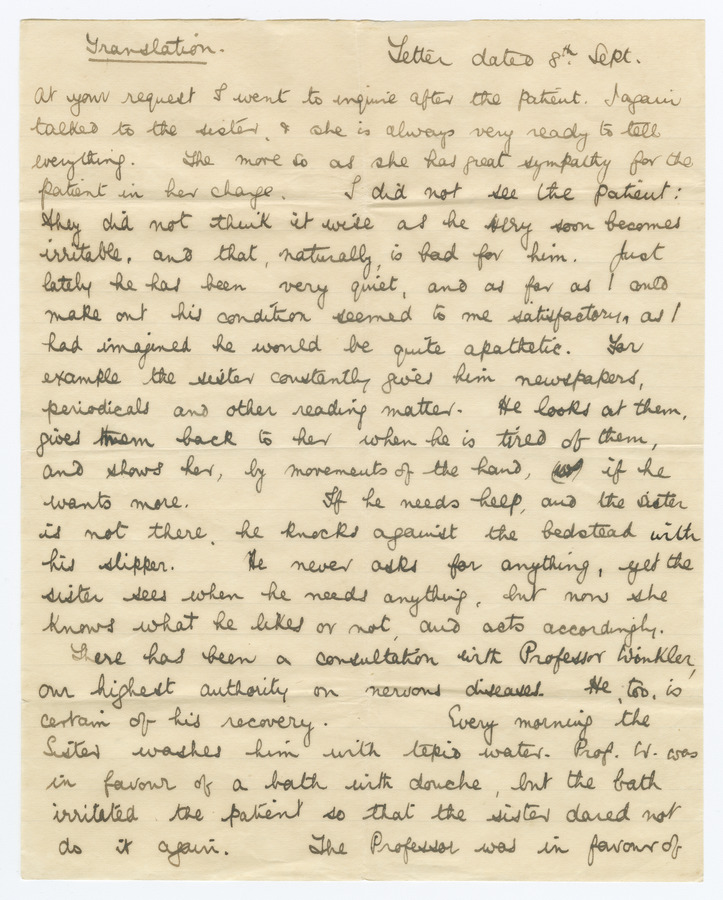 Translation.
Letter dated 8th Sept.
At your request I went to inquire after the patient. I again
talked to the sister, & she is always very ready to tell
everything. The more so as she has great sympathy for the
patient in her charge. I did not see the patient:
they did not think it wise as he very soon becomes
irritable, and that, naturally, is bad for him. Just
lately he has been very quiet, and as far as I could
make out his condition seemed to me satisfactory, as I
had imagined he would be quite apathetic. For
example the sister constantly gives him newspapers,
periodicals and other reading matter. He looks at them,
gives them back to her when he is tired of them,
and shows her, by movements of the hand, if he
wants more. If he needs help, and the sister
is not there, he knocks against the bedstead with
his slipper. He never asks for anything, yet the
sister sees when he needs anything, but now she
knows what he likes or not, and acts accordingly.
There has been a consultation with Professor Winkler,
our highest authority on nervous diseases. He, too, is
certain of his recovery. Every morning the
Sister washes him with tepid water. Prof. W. was
in favour of a bath with douche, but the bath
irritated the patient so that the sister dared not
do it again. The Professor was in favour of